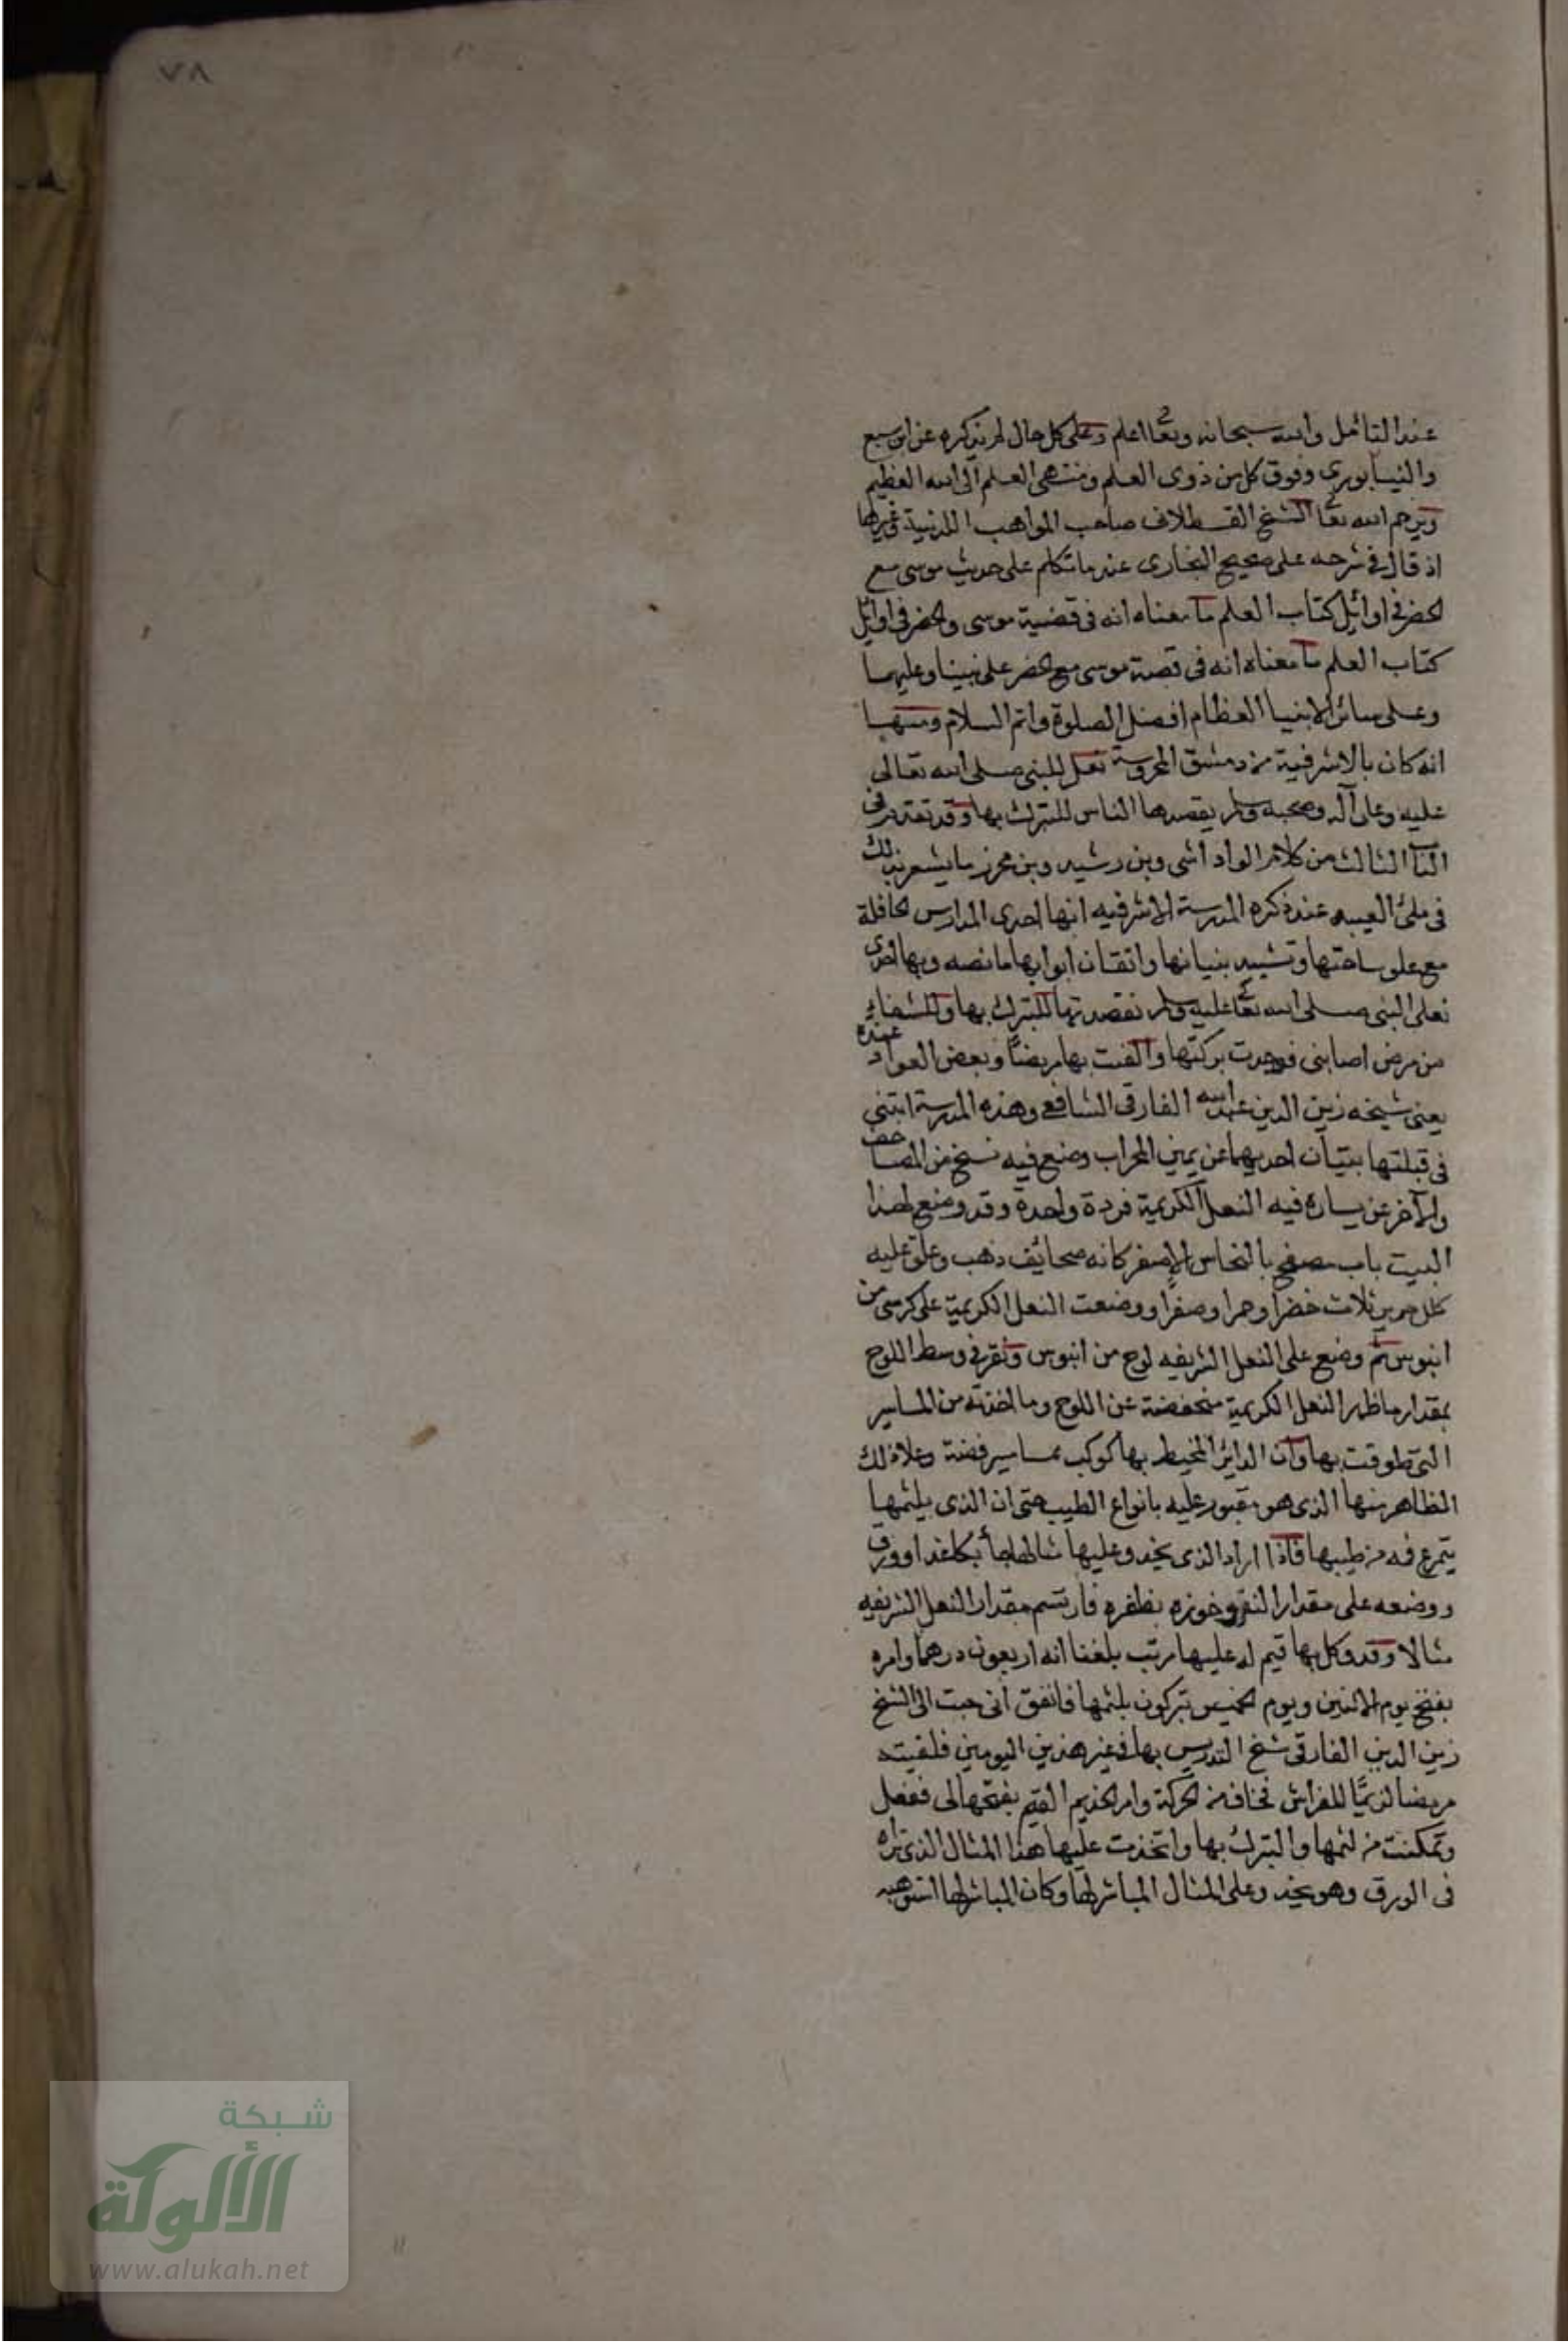 ٧٨
عند التأمل والله سبحانه وتعا اعلم وعلى كل حال لم يذكره عن ابن سبع
والنيسابوري وفوق كل من ذوى العلم ومنتهى العلم الى الله العظيم
ويرحم الله تعا الشيخ القسطلاني صاحب المواهب اللدنية وغيرها
اذ قال في شرحه على صحيح البخارى عند ما تكلم على حديث موسى مع
الخضر في اوائل كتاب العلم ما معناه انه في قضية موسى والخضر في اوائل
كتاب العلم ما معناه انه في قصة موسى مع الخضر على نبينا وعليهما
وعلى سائر الانبيا العظام افضل الصلوة واتم السلام ومنها
انه كان بالاشرفية من دمشق المحروسة نعل للنبى صلى الله تعالى
عليه وعلى آله وصحبه وسلم يقصدها الناس للتبرك بها وقد تقدم في
الباب الثالث من كلام الوادآشى وبن رشيد وبن محرز ما يشعر بذلك
في ملئ العيبه عند ذكره المدرسة الاشرفيه انها احدى المدارس الحافلة
مع علو ساحتها وتشييد بنيانها واتقان ابوابها ما نصه وبها احدى
نعلى النبى صلى الله تعا عليه وسلم نقصدتها للتبرك بها وللشفاء
من مرض اصابنى فوجدت بركتها والفيت بها مريضا وبعض العواد عنده
يعنى شيخه زين الدين عبد الله الفارقى الشافعي وهذه المدرسة ابتنى
في قبلتها بيتان احديهما عن يمين المحراب وضع فيه نسخ من المصاحف
والآخر عن يساره فيه النعل الكريمية فردة واحدة وقد وضع لهذا
البيت باب مصفح بالنحاس الاصفر كانه صحائف ذهب وعلق عليه
كلل حرير ثلاث خضرا وحمرا وصفرا ووضعت النعل الكريمية على كرسى من
ابنوس ثم وضع على النعل الشريفه لوح من ابنوس ونقر في وسط اللوح
بمقدار ما ظهر النعل الكريمية منخفضة عن اللوح وما اخذته من المسامير
التى طوقت بها وان الدائر المحيط بها كوكب بمسامير فضة وعلا ذلك
الظاهر منها الذى هو مقبور عليه بانواع الطيب حتى ان الذى يلثمها
يتمرغ فمه من طيبها فاذا اراد الذى يخدو عليها مثالها جأ بكاغد او ورق
ووضعه على مقدار النقر وخوزه بظفره فارتسم مقدار النعل الشريفه
مثالا وقد وكل بها قيم له عليها مرتب بلغنا انه اربعون درهما وامره
بفتح يوم الاثنين ويوم الخميس تبركون بلثمها فاتفق انى جيت الى الشيخ
زين الدين الفارقى شيخ التدريس بها في غير هذين اليومين فلقيته
مريضا لازمًا للفراش فخاف من الحركة وامر الخديم القيم بفتحها لى ففعل
وتمكنت من لثمها والتبرك بها واتخذت عليها هذا المثال الذى تراه
فى الورق وهو يخدو على المثال المباشر لها وكان المباشر لها استوهبه
شبكة
الألوكة
www.alukah.net